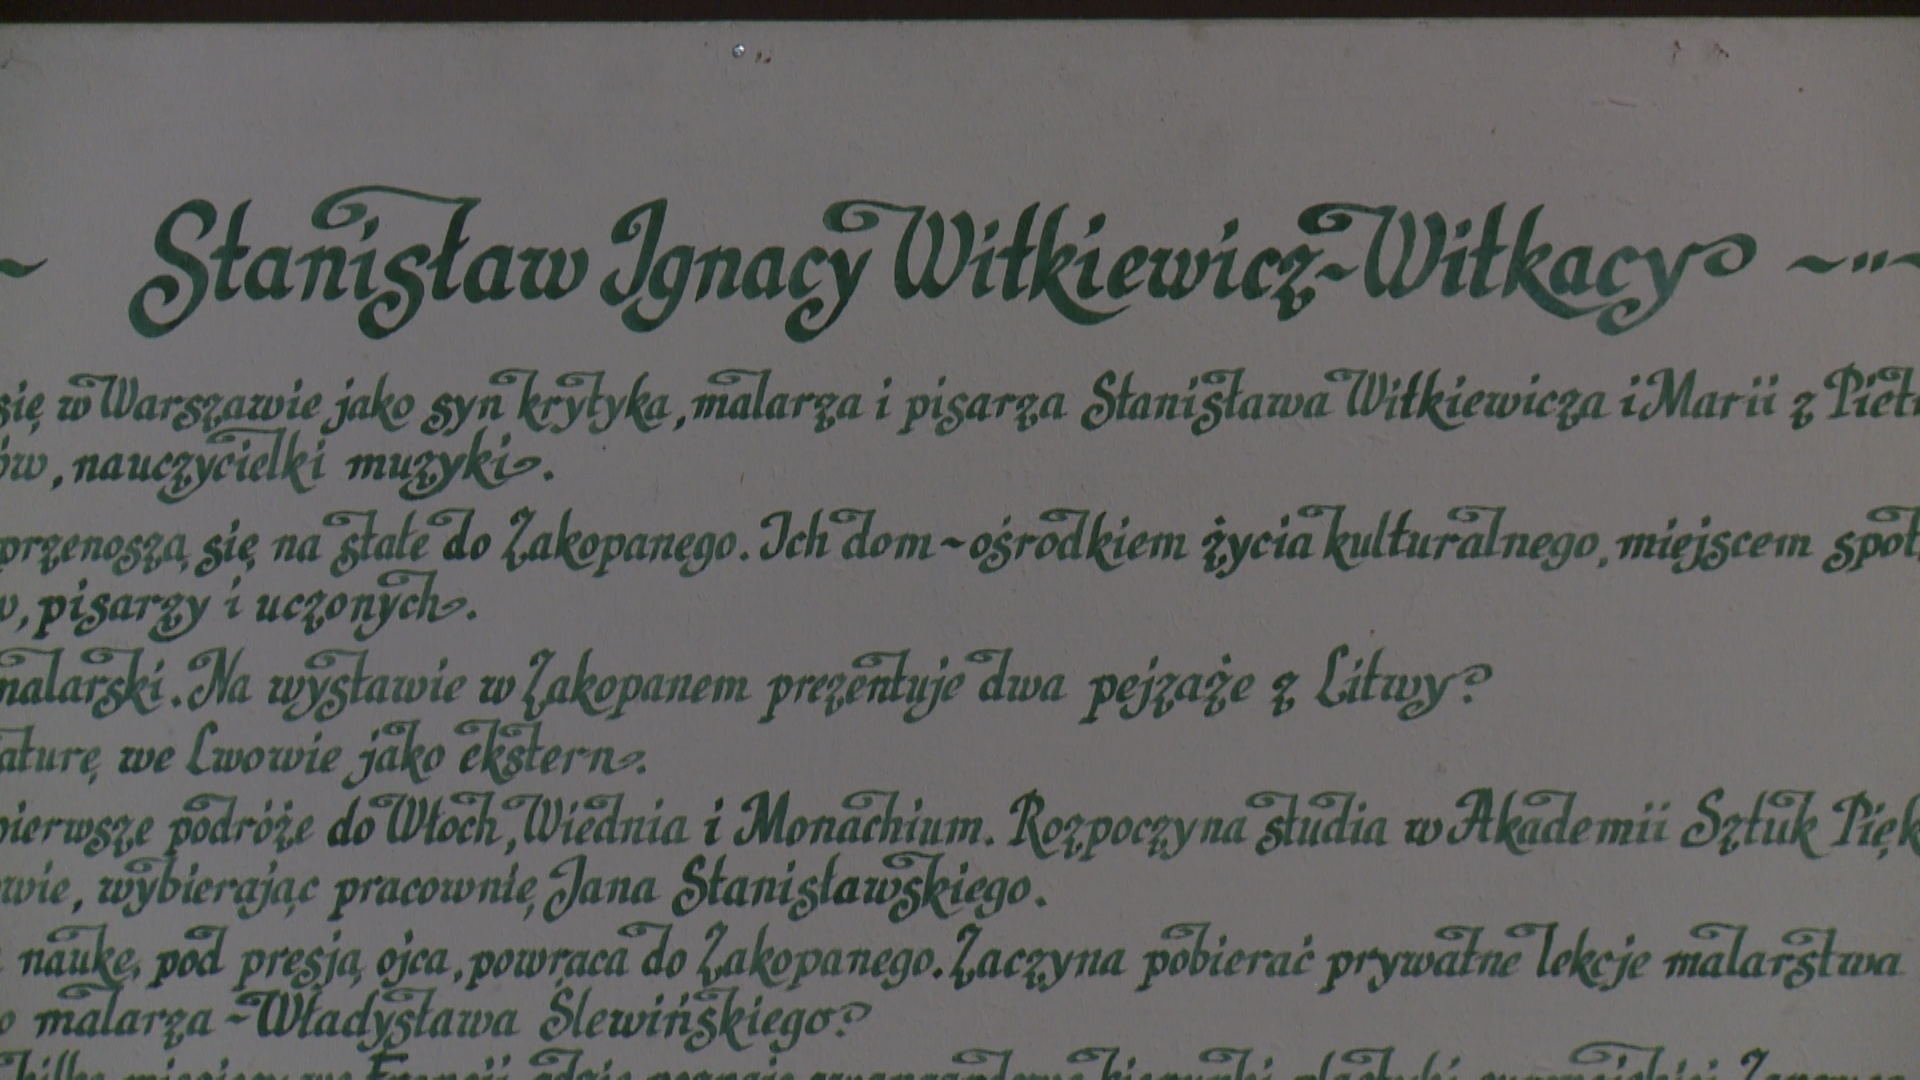 Stanisław Ignacy Witkiewicz~Witkacy
się w Warszawie jako syn krytyka, malarza i pisarza Stanisława Witkiewicza i Marii z Piet
ów, nauczycielki muzyki.
przenoszą się na stałe do Zakopanego. Ich dom~ośrodkiem życia kulturalnego, miejscem spot
w, pisarzy i uczonych.
malarski. Na wystawie w Zakopanem prezentuje dwa pejzaże z Litwy.
aturę we Lwowie jako ekstern.
pierwsze podróże do Włoch, Wiednia i Monachium. Rozpoczyna studia w Akademii Sztuk Pięk
wie, wybierając pracownię Jana Stanisławskiego.
naukę, pod presją ojca, powraca do Zakopanego. Zaczyna pobierać prywatne lekcje malarstwa
o malarza ~Władysława Slewińskiego.